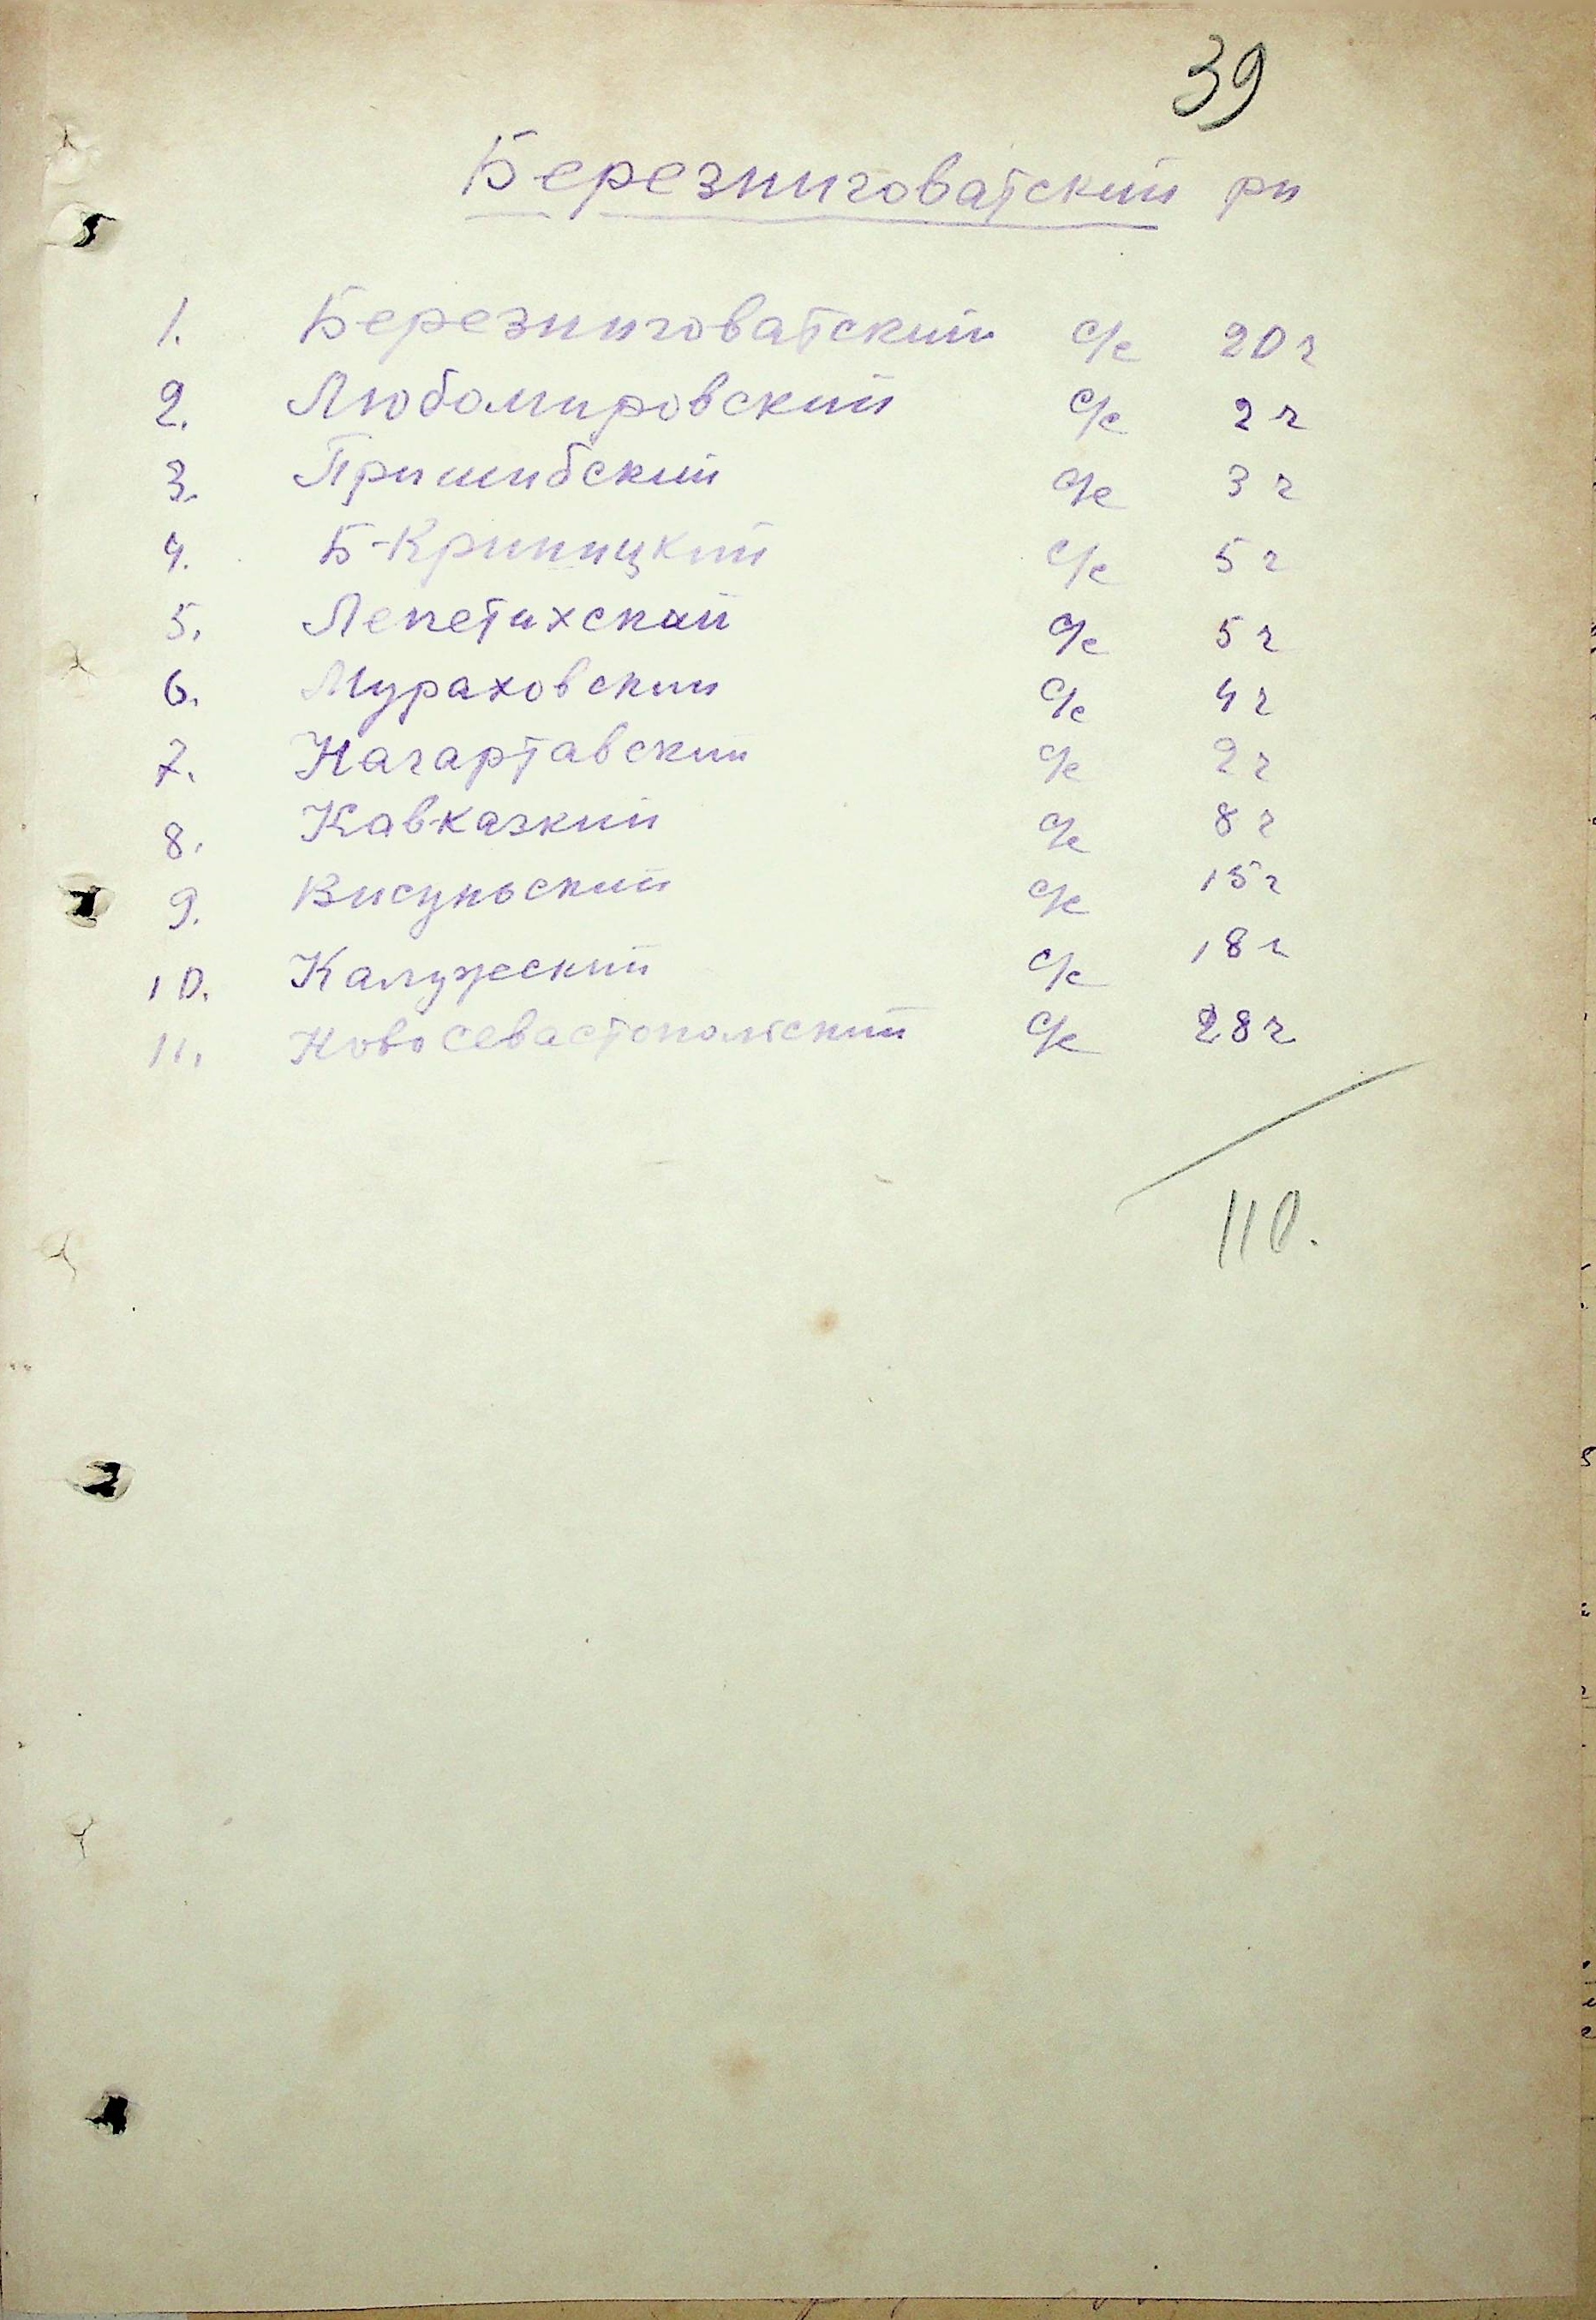 39
Березниговатский рн
1. Березниговатский с/с 20 г
2. Любомировский с/с 2 г
3. Пришибский с/с 3 г
4. Б-Криницкий с/с 5 г
5. Лепетихский с/с 5 г
6. Мураховский с/с 4 г
7. Нагартавский с/с 2 г
8. Кавказкий с/с 8 г
9. Висуньский с/с 15 г
10. Калужский с/с 18 г
11. Новосевастопольский с/с 28 г
110.